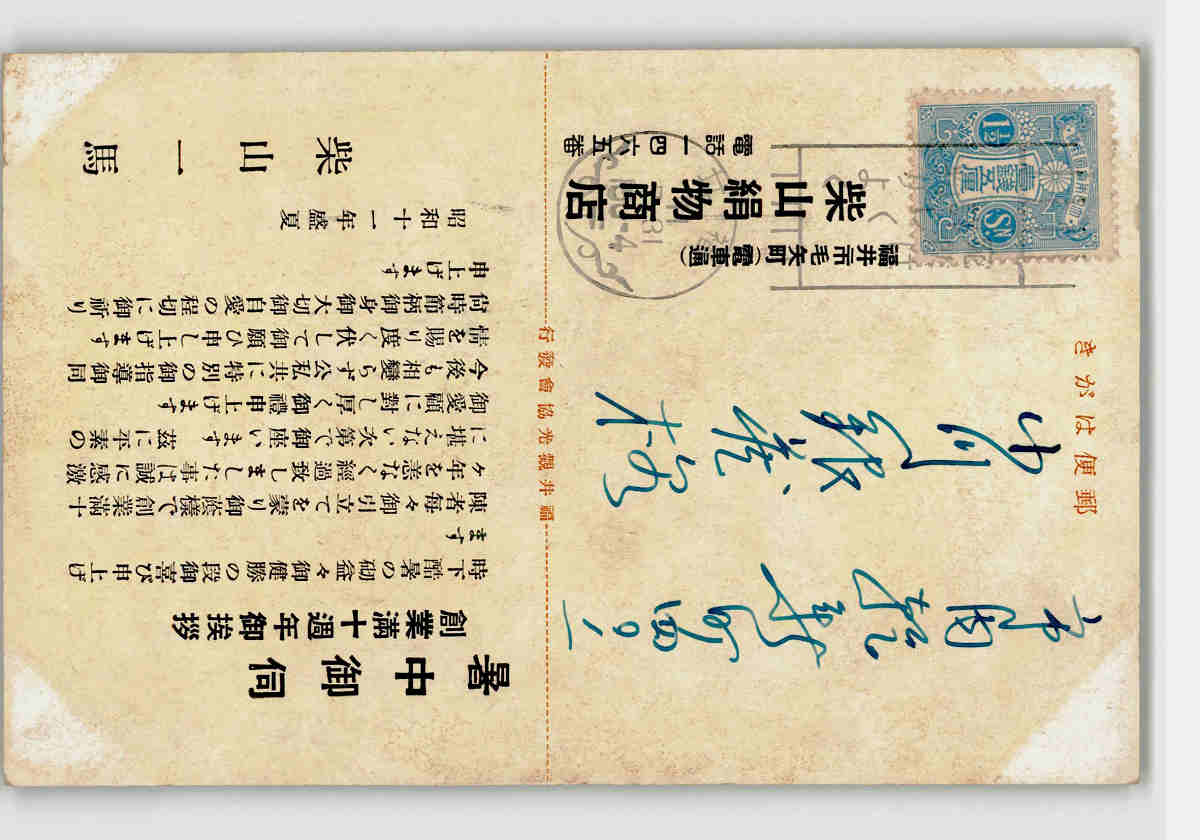 郵便はがき
1½
壹錢五厘
SN
福井市毛矢町(電車通)
柴山絹物商店
電話一四六五番
福井觀光協會發行
暑中御伺
創業滿十週年御挨拶
時下酷暑の砌益々御健勝の段御喜び申上げ
ます
陳者每々御引立てを蒙り御蔭樣で創業滿十
ヶ年を恙なく經過致しました事は誠に感激
に堪えない次第で御座います 茲に平素の
御愛顧に對し厚く御禮申上げます
今後も相變らず公私共に特別の御指導御同
情を賜り度く伏して御願ひ申し上げます
尙時節柄御身御大切御自愛の程切に御祈り
申上げます
昭和十一年盛夏
柴山一馬